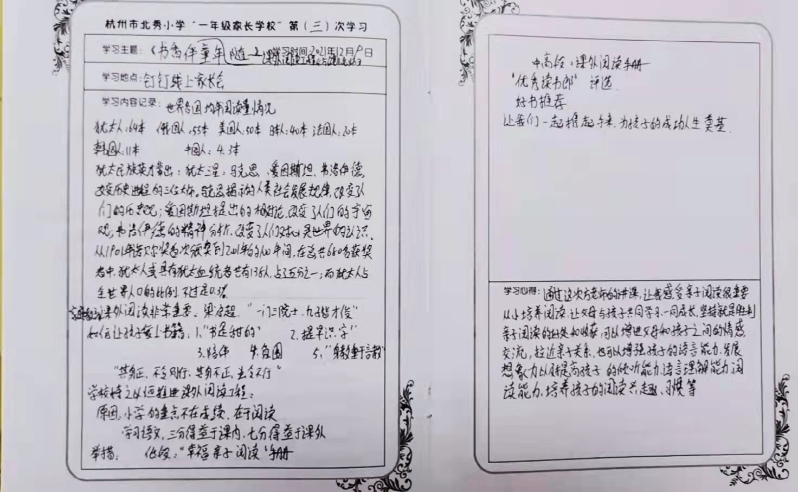 杭州市北秀小学"一年级家长学校"第(三)次学习
学习主题:《书香伴童年》随 学习时间2021年12月9日
学习地点:钉钉线上家长会
学习内容记录:世界各国均年阅读量情况
犹太人:64本 俄国人:55本 美国人:50本 日本人:40本 法国人:20本
韩国人11本 中国人:4.3本
犹太民族英才辈出:犹太三星:马克思、爱因斯坦、弗洛伊德,
改变历史进程的三位大师。马克思揭示的人类社会发展规律,改变了人
们的历史观;爱因斯坦提出的相对论,改变了人们的宇宙
观,弗洛伊德的精神分析,改变了人们对心灵世界的认识。
从1901年诺贝尔奖首次颁奖到2001年的100年间,在总共680名获奖
者中,犹太人或具有犹太血统者共有138人,占了五分之一;而犹太人占
全世界人口的比例,不过是0.3%
课外阅读非常重要。梁启超 "一门三院士,九子皆才俊"
如何让孩子爱上书籍:1."书是甜的" 2.提早识字
3.陪伴 4.氛围 5."身教重于言教"
"其身正,不令则行,其身不正,虽令不行"
学校持之以恒推进课外阅读工程:
原因,小学的重点不在成绩,在于阅读
学习语文,三分得益于课内,七分得益于课外
举措: 低段:"幸福亲子阅读"手册
中高段:课外阅读手册
"优秀读书郎"评选
好书推荐
让我们一起携起手来,为孩子的成功人生奠基
学习心得:通过这次方老师的讲课,让我感受亲子阅读很重要
从小培养阅读,让父母与孩子共同学习,一同成长,坚持就是胜利
亲子阅读的好处和收获,可以增进父母和孩子之间的情感
交流,拉近亲子关系,也可以增强孩子的语言能力,发展
想象力以及提高孩子的倾听能力,语言理解能力,阅
读能力,培养孩子的阅读兴趣、习惯等